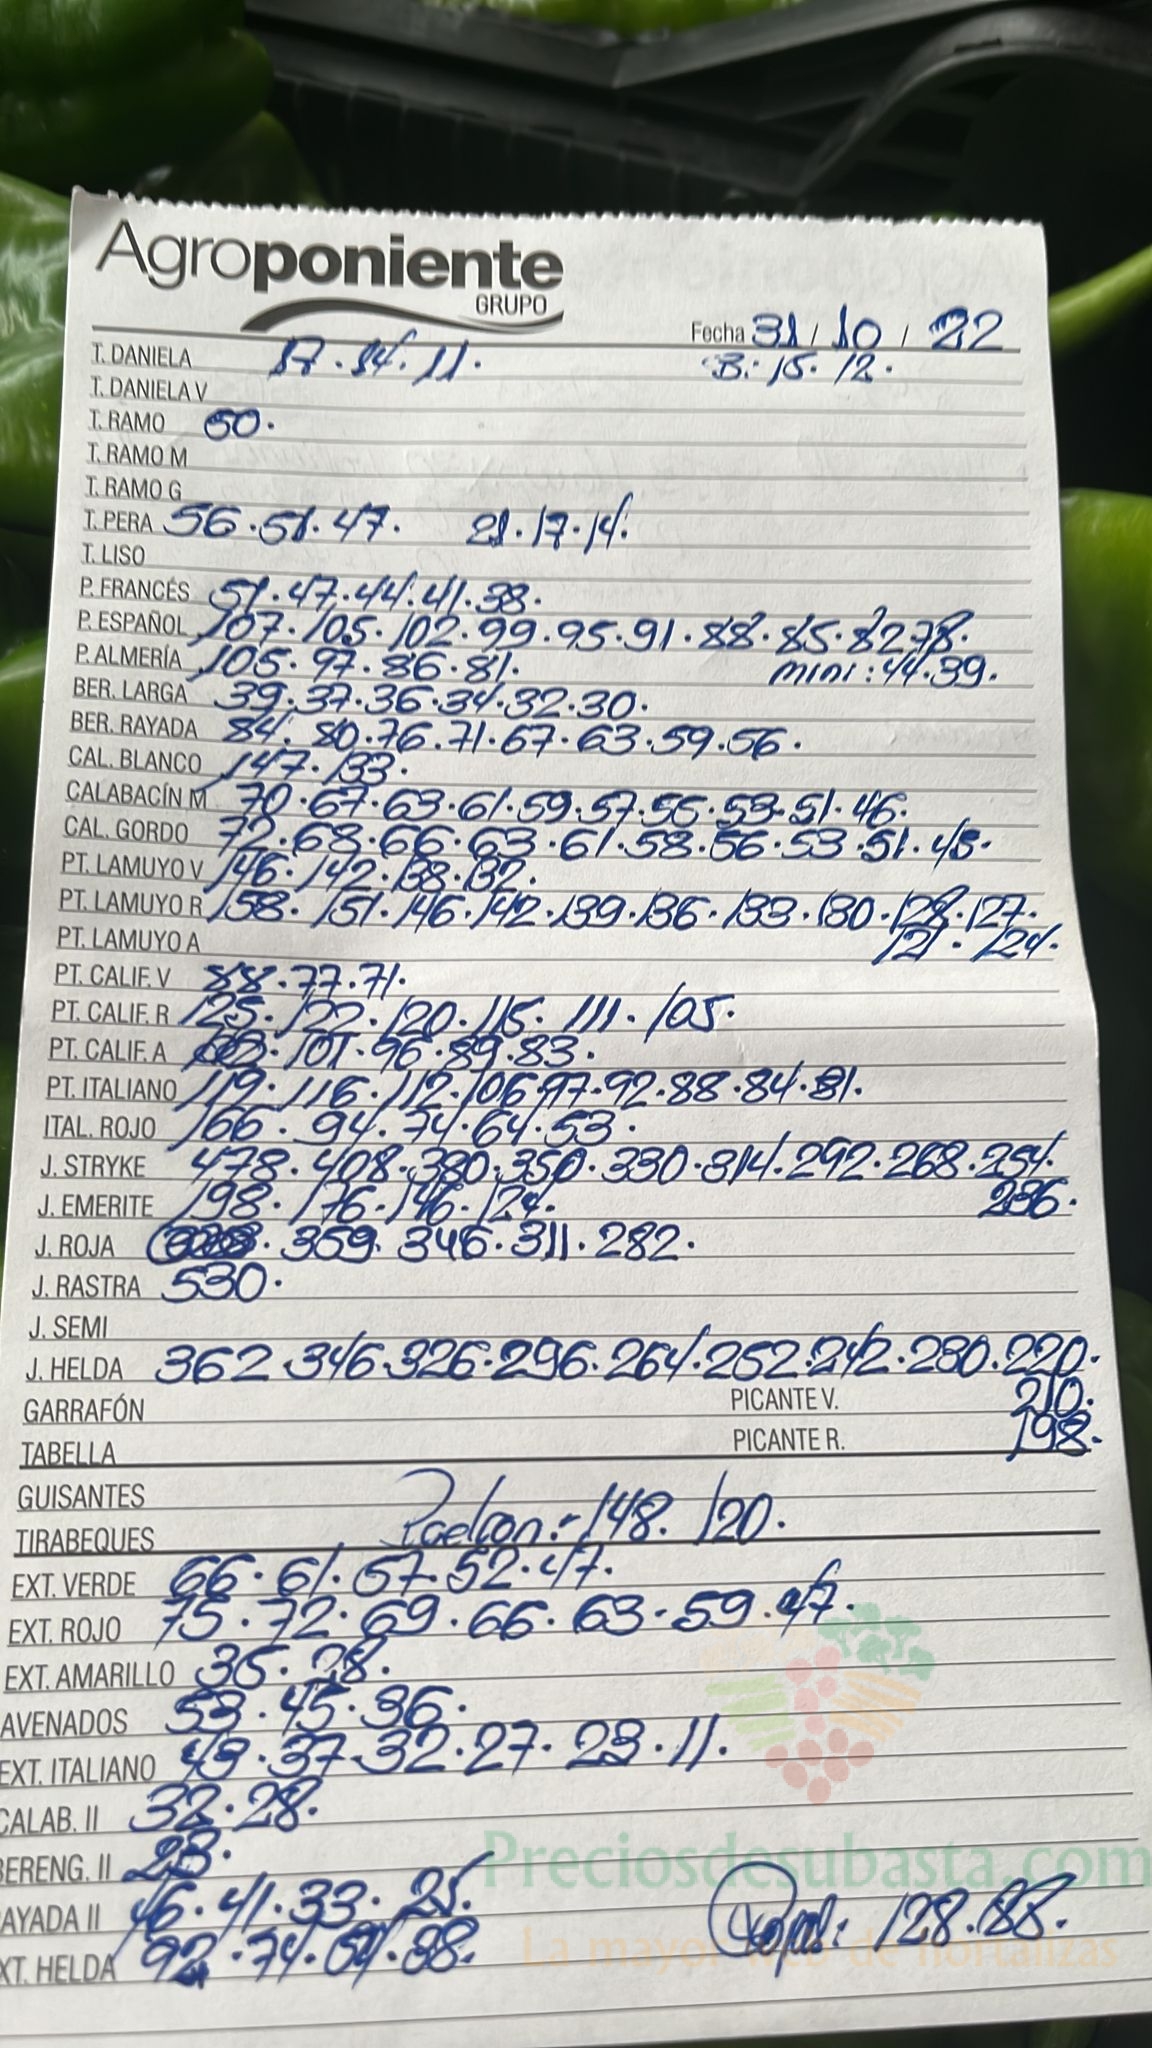 Agroponiente
GRUPO
Fecha 31 / 10 / 22
T. DANIELA 17. 14. 11. B: 15. 12.
T. DANIELA V
T. RAMO 50.
T. RAMO M
T. RAMO G
T. PERA 56. 51. 47. 21. 17. 14.
T. LISO
P. FRANCÉS 51. 47. 44. 41. 38.
P. ESPAÑOL 107. 105. 102. 99. 95. 91. 88. 85. 82. 78.
P. ALMERÍA 105. 97. 86. 81. mini: 44. 39.
BER. LARGA 39. 37. 36. 34. 32. 30.
BER. RAYADA 84. 80. 76. 71. 67. 63. 59. 56.
CAL. BLANCO 147. 133.
CALABACÍN M 70. 67. 63. 61. 59. 57. 55. 53. 51. 46.
CAL. GORDO 72. 68. 66. 63. 61. 58. 56. 53. 51. 45.
PT. LAMUYO V 146. 142. 138. 132.
PT. LAMUYO R 158. 151. 146. 142. 139. 136. 133. 130. 128. 127.
PT. LAMUYO A 121. 124.
PT. CALIF. V 88. 77. 71.
PT. CALIF. R 125. 122. 120. 115. 111. 105.
PT. CALIF. A 101. 96. 89. 83.
PT. ITALIANO 119. 116. 112. 106. 97. 92. 88. 84. 81.
ITAL. ROJO 166. 94. 74. 64. 53.
J. STRYKE 478. 408. 380. 350. 330. 314. 292. 268. 254.
J. EMERITE 198. 176. 146. 124. 236.
J. ROJA 359. 346. 311. 282.
J. RASTRA 530.
J. SEMI
J. HELDA 362. 346. 326. 296. 264. 252. 242. 230. 220.
GARRAFÓN PICANTE V. 210.
TABELLA PICANTE R. 198.
GUISANTES
TIRABEQUES 148. 120.
EXT. VERDE 66. 61. 57. 52. 47.
EXT. ROJO 75. 72. 69. 66. 63. 59. 47.
EXT. AMARILLO 35. 28.
AVENADOS 53. 45. 36.
EXT. ITALIANO 43. 37. 32. 27. 23. 11.
CALAB. II 32. 28.
BERENG. II 23.
Preciosdesubasta.com
AYADA II 46. 41. 33. 25.
128. 88.
La mayor web de hortalizas
XT. HELDA 92. 74. 38.